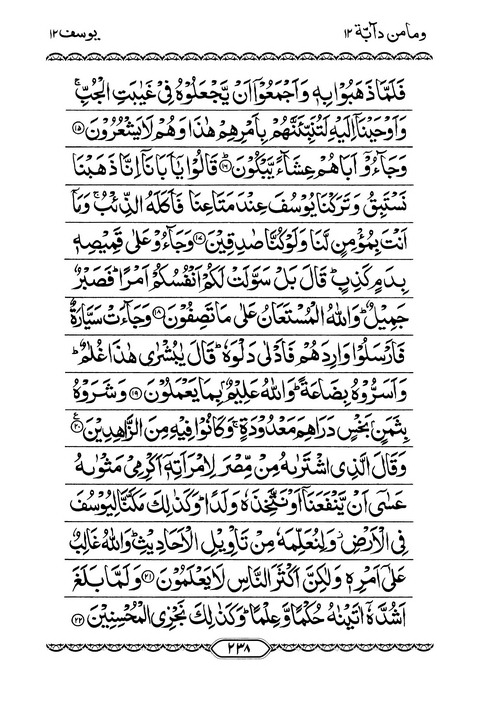 وما من دآبّة ١٢
يوسف ١٢
فَلَمَّا ذَهَبُوْا بِهٖ وَاَجْمَعُوْٓا اَنْ يَّجْعَلُوْهُ فِيْ غَيٰبَتِ الْجُبِّ ۚ
وَاَوْحَيْنَآ اِلَيْهِ لَتُنَبِّئَنَّهُمْ بِاَمْرِهِمْ هٰذَا وَهُمْ لَا يَشْعُرُوْنَ ﴿١٥﴾
وَجَآءُوْٓ اَبَاهُمْ عِشَآءً يَّبْكُوْنَ ؕ ﴿١٦﴾ قَالُوْا يٰٓاَبَانَآ اِنَّا ذَهَبْنَا
نَسْتَبِقُ وَتَرَكْنَا يُوْسُفَ عِنْدَ مَتَاعِنَا فَاَكَلَهُ الذِّئْبُ ۚ وَمَآ
اَنْتَ بِمُؤْمِنٍ لَّنَا وَلَوْ كُنَّا صٰدِقِيْنَ ﴿١٧﴾ وَجَآءُوْ عَلٰى قَمِيْصِهٖ
بِدَمٍ كَذِبٍ ؕ قَالَ بَلْ سَوَّلَتْ لَكُمْ اَنْفُسُكُمْ اَمْرًا ؕ فَصَبْرٌ
جَمِيْلٌ ؕ وَاللّٰهُ الْمُسْتَعَانُ عَلٰى مَا تَصِفُوْنَ ﴿١٨﴾ وَجَآءَتْ سَيَّارَةٌ
فَاَرْسَلُوْا وَارِدَهُمْ فَاَدْلٰى دَلْوَهٗ ؕ قَالَ يٰبُشْرٰى هٰذَا غُلٰمٌ ؕ
وَاَسَرُّوْهُ بِضَاعَةً ؕ وَاللّٰهُ عَلِيْمٌۢ بِمَا يَعْمَلُوْنَ ﴿١٩﴾ وَشَرَوْهُ
بِثَمَنٍۢ بَخْسٍ دَرَاهِمَ مَعْدُوْدَةٍ ۚ وَكَانُوْا فِيْهِ مِنَ الزَّاهِدِيْنَ ﴿٢٠﴾ ع
وَقَالَ الَّذِى اشْتَرٰىهُ مِنْ مِّصْرَ لِامْرَاَتِهٖٓ اَكْرِمِيْ مَثْوٰىهُ
عَسٰٓى اَنْ يَّنْفَعَنَآ اَوْ نَتَّخِذَهٗ وَلَدًا ؕ وَكَذٰلِكَ مَكَّنَّا لِيُوْسُفَ
فِى الْاَرْضِ ؗ وَلِنُعَلِّمَهٗ مِنْ تَاْوِيْلِ الْاَحَادِيْثِ ؕ وَاللّٰهُ غَالِبٌ
عَلٰٓى اَمْرِهٖ وَلٰكِنَّ اَكْثَرَ النَّاسِ لَا يَعْلَمُوْنَ ﴿٢١﴾ وَلَمَّا بَلَغَ
اَشُدَّهٗٓ اٰتَيْنٰهُ حُكْمًا وَّعِلْمًا ؕ وَكَذٰلِكَ نَجْزِى الْمُحْسِنِيْنَ ﴿٢٢﴾
٢٣٨